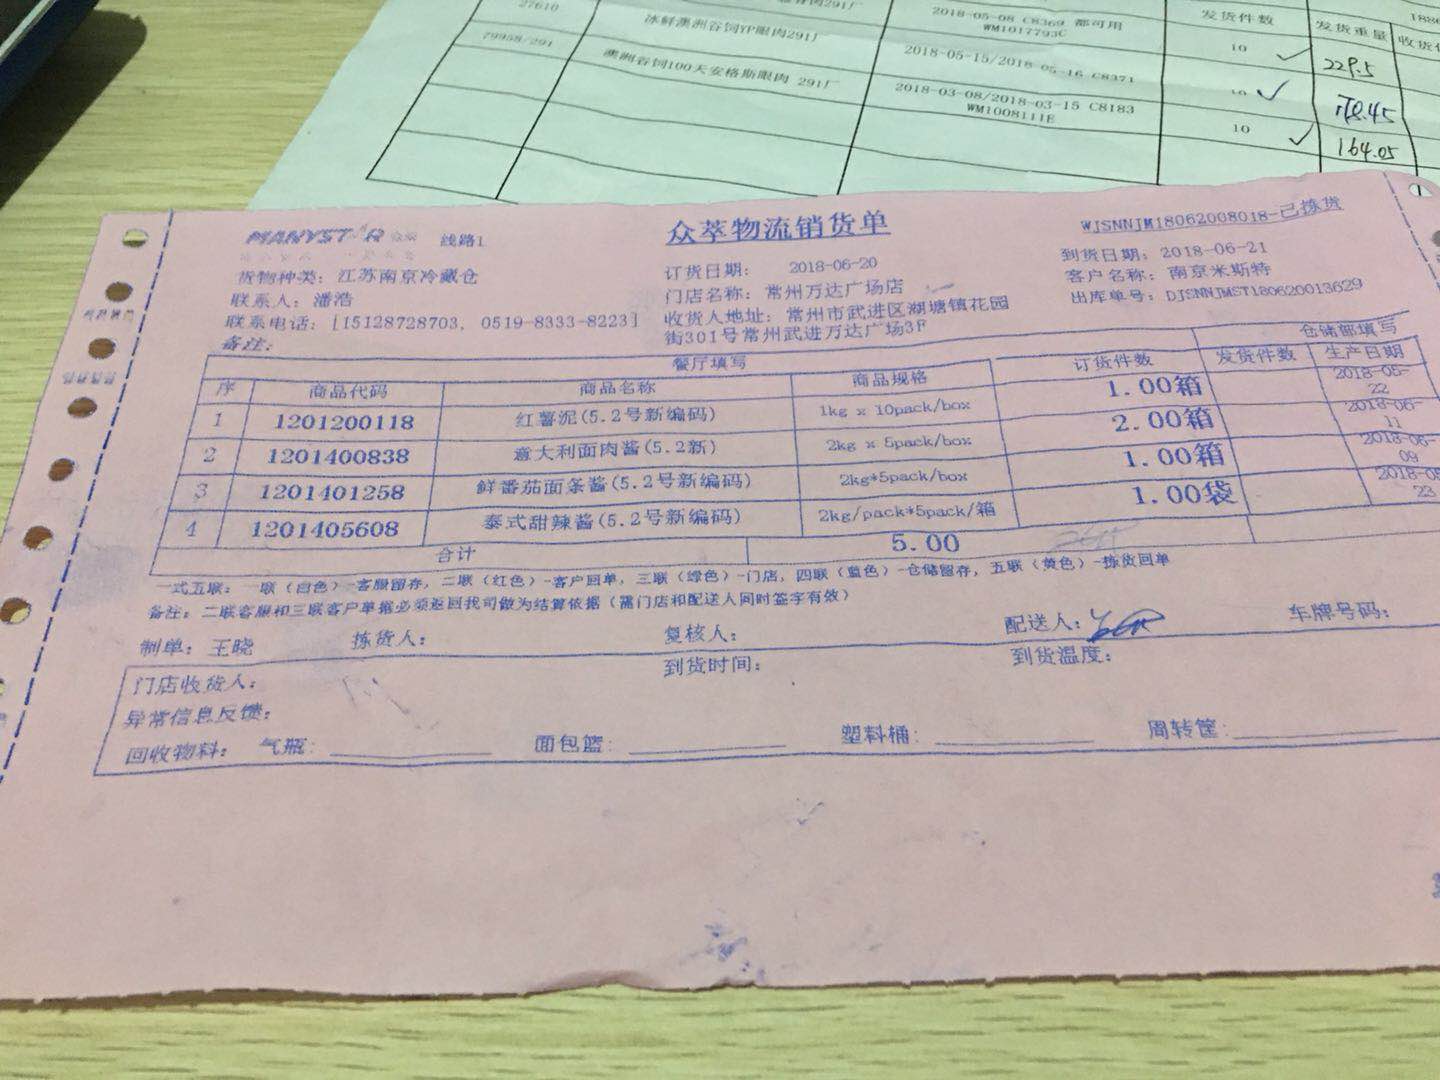 27610
冰鲜澳洲谷饲YP眼肉291厂
2018-05-08 C8369 都可用
WM1017793C
发货件数
发货重量
10
229.5
79958/291
澳洲谷饲100天安格斯眼肉 291厂
2018-05-15/2018-05-16 C8371
10
178.45
2018-03-08/2018-03-15 C8183
WM1008111E
10
164.05
众萃物流销货单
WJSNNJM18062008018-已拣货
线路1
货物种类：江苏南京冷藏仓
订货日期： 2018-06-20
到货日期：2018-06-21
联系人：潘浩
门店名称：常州万达广场店
客户名称：南京米斯特
联系电话：[15128728703, 0519-8333-8223]
收货人地址：常州市武进区湖塘镇花园
街301号常州武进万达广场3F
出库单号：DJSNNJMST180620013629
备注：
餐厅填写
仓储部填写
序 商品代码 商品名称 商品规格 订货件数 发货件数 生产日期
1 1201200118 红薯泥(5.2号新编码) 1kg x 10pack/box 1.00箱 2018-05-22
2 1201400838 意大利面肉酱(5.2新) 2kg x 5pack/box 2.00箱 2018-06-11
3 1201401258 鲜番茄面条酱(5.2号新编码) 2kg*5pack/box 1.00箱 2018-06-09
4 1201405608 泰式甜辣酱(5.2号新编码) 2kg/pack*5pack/箱 1.00袋 23
合计 5.00
一式五联：一联（白色）-客服留存，二联（红色）-客户回单，三联（绿色）-门店，四联（蓝色）-仓储留存，五联（黄色）-拣货回单
备注：二联客服和三联客户单据必须返回我司做为结算依据（需门店和配送人同时签字有效）
制单：王晓 拣货人： 复核人： 配送人： 车牌号码：
门店收货人： 到货时间： 到货温度：
异常信息反馈：
回收物料： 气瓶： 面包篮： 塑料桶： 周转筐：